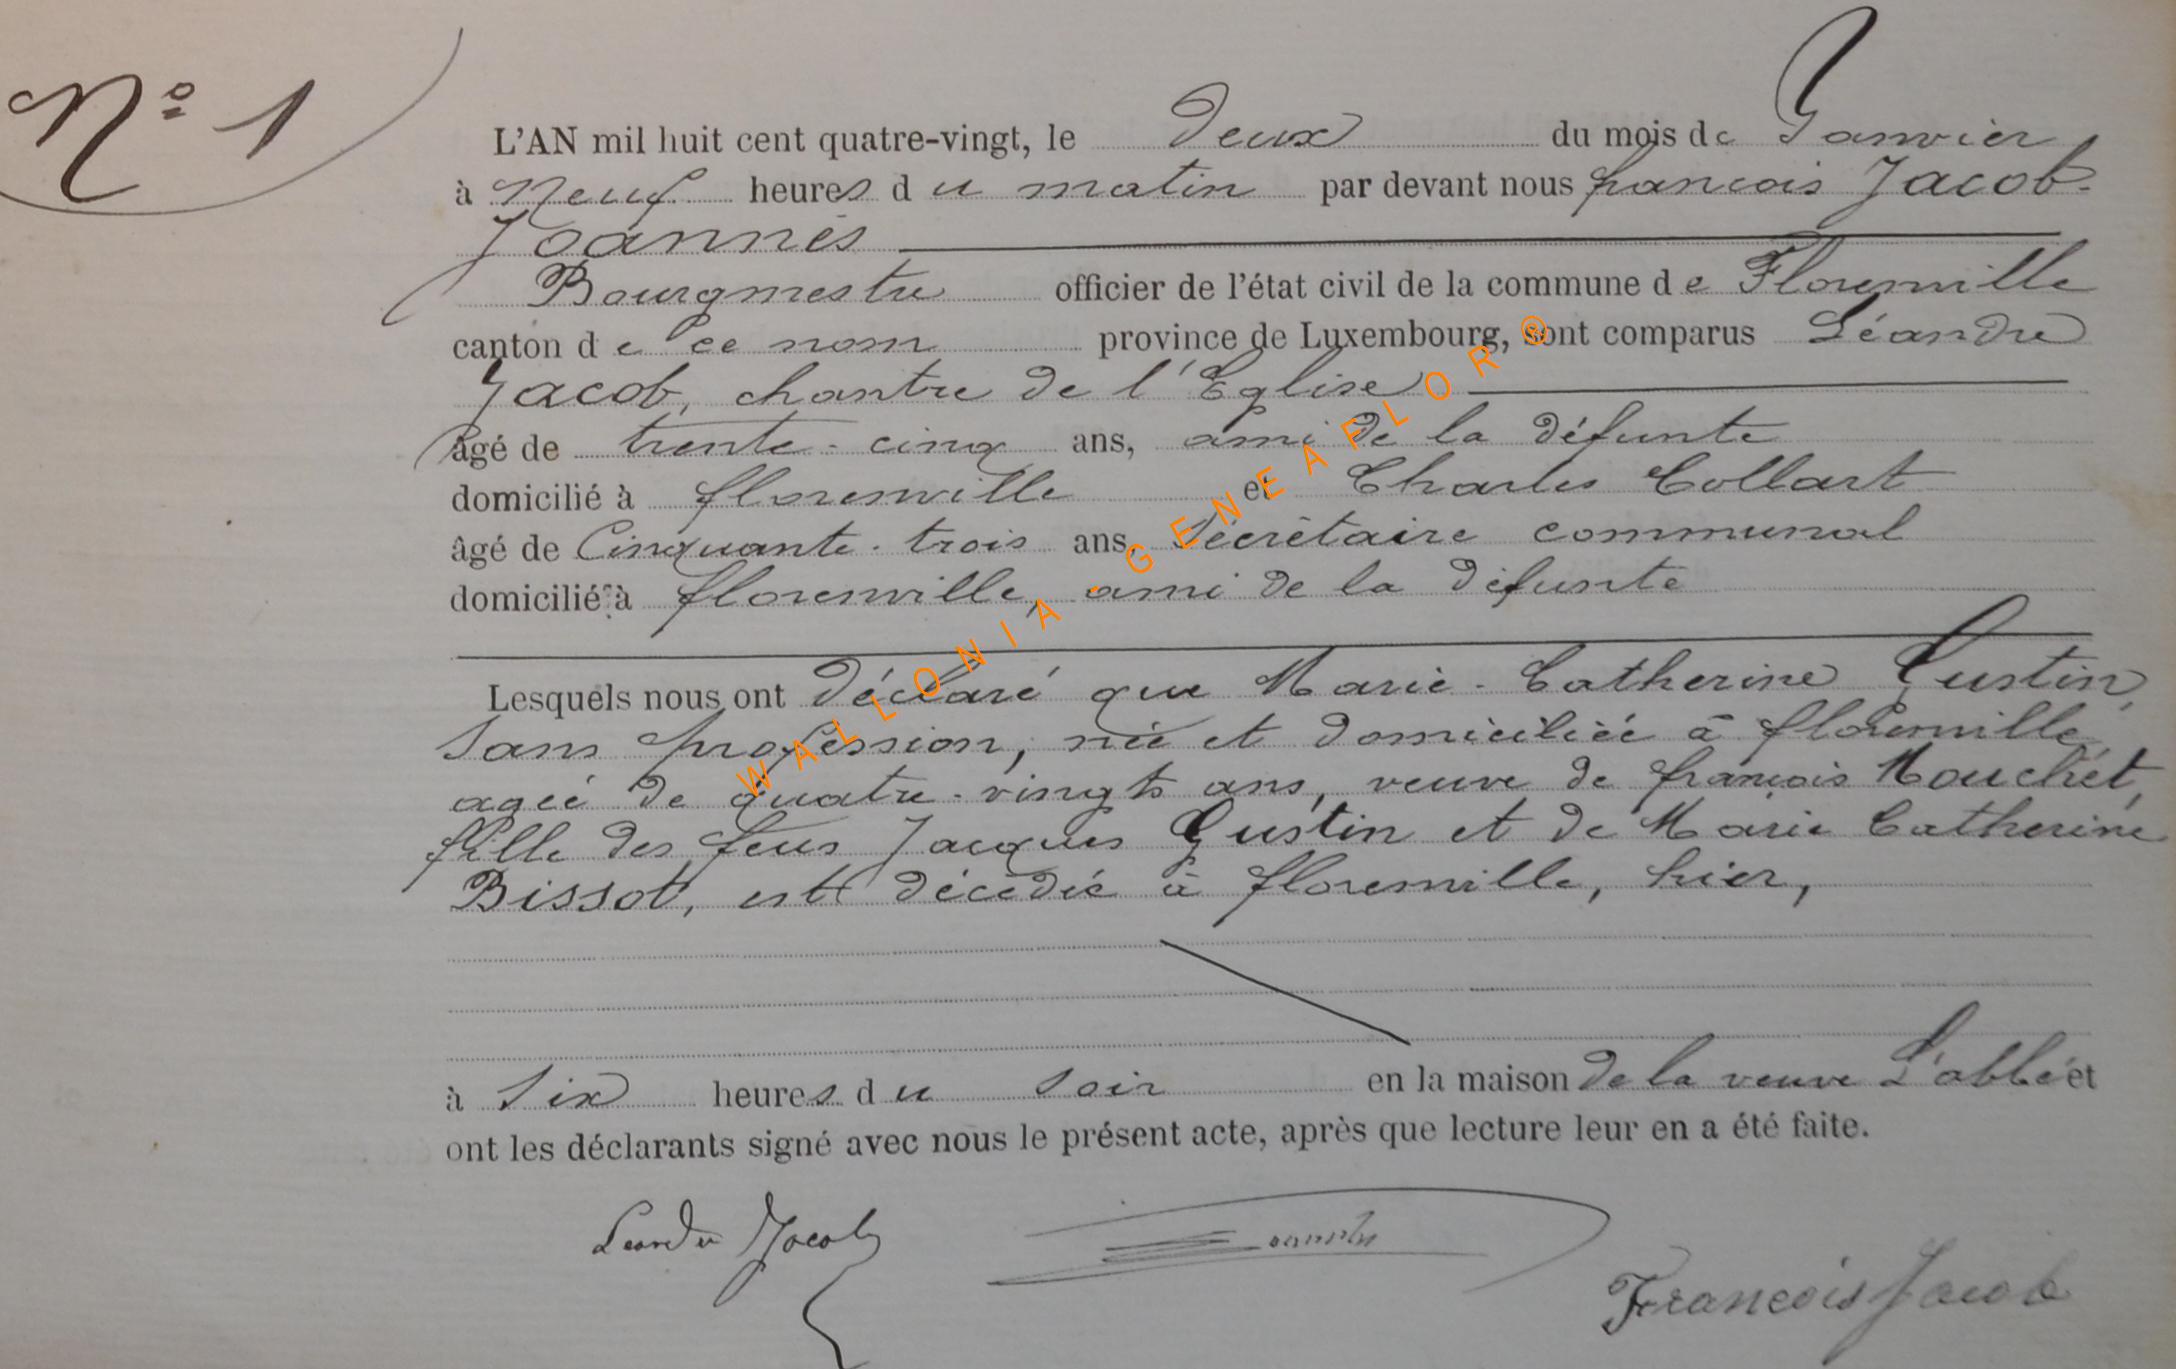 N° 1
L'AN mil huit cent quatre-vingt, le Deux du mois de Janvier
à Neuf heures du matin par devant nous françois Jacob-
Joannès
Bourgmestre officier de l'état civil de la commune de Florenville
canton de ce nom province de Luxembourg, sont comparus Léandre
Jacob, chantre de l'Eglise
âgé de trente-cinq ans, ami de la défunte
domicilié à florenville et Charles Collart
âgé de Cinquante-trois ans, Sécrétaire communal
domicilié à florenville, ami de la défunte
Lesquels nous ont Déclaré que Marie-Catherine Gustin,
Sans profession, née et domiciliée à florenville,
agée de quatre-vingts ans, veuve de françois Mouchet,
fille des feus Jacques Gustin et de Marie Catherine
Bissot, est décédée à florenville, hier,
à Six heures du Soir en la maison de la veuve L'abbé et
ont les déclarants signé avec nous le présent acte, après que lecture leur en a été faite.
Leandre Jacob
François Jacob
WALLONIA-GENEAFLOR®